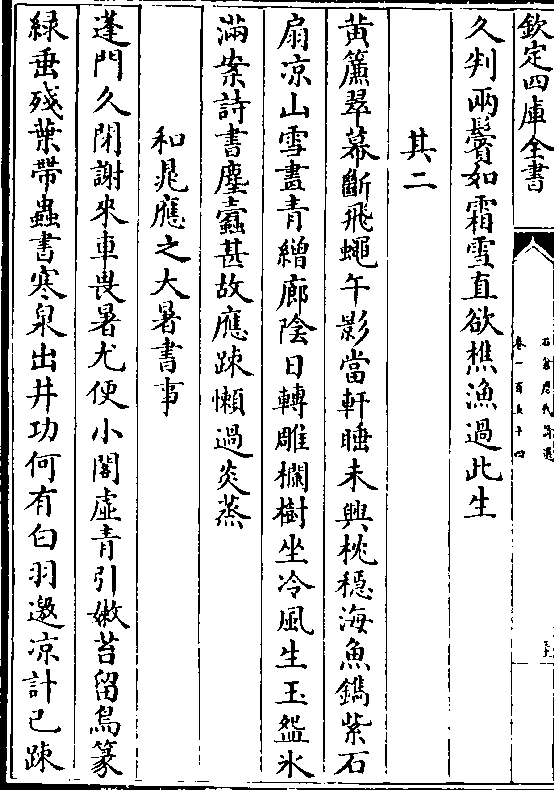 欽定四庫全書
卷一百五十四
久判兩鬢如霜雪直欲樵漁過此生
其二
黃簾翠幕斷飛蠅午影當軒睡未興枕穩海魚鐫紫石
扇凉山雪畫青繒廊陰日轉雕欄樹坐冷風生玉盌氷
滿案詩書塵蠹甚故應踈懶過炎蒸
和晁應之大暑書事
蓬門久閉謝來車畏暑尤便小閣虛青引嫩苔留鳥篆
緑垂殘葉帶蟲書寒泉出井功何有白羽邀凉計已踈